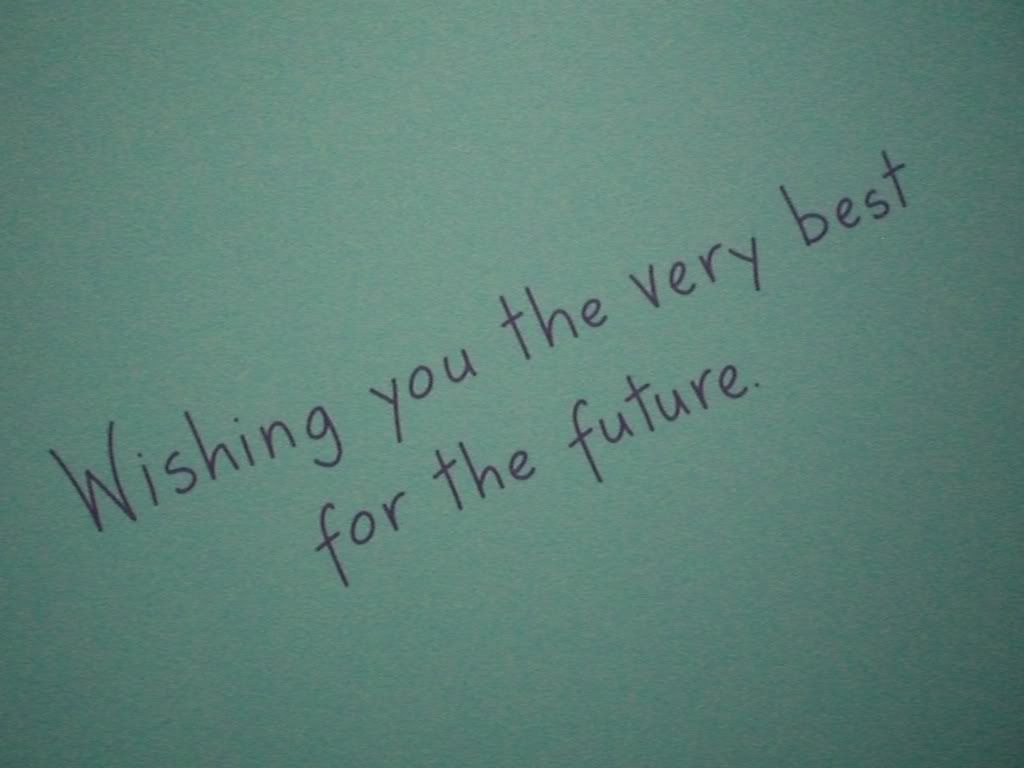 Wishing you the very best
for the future.